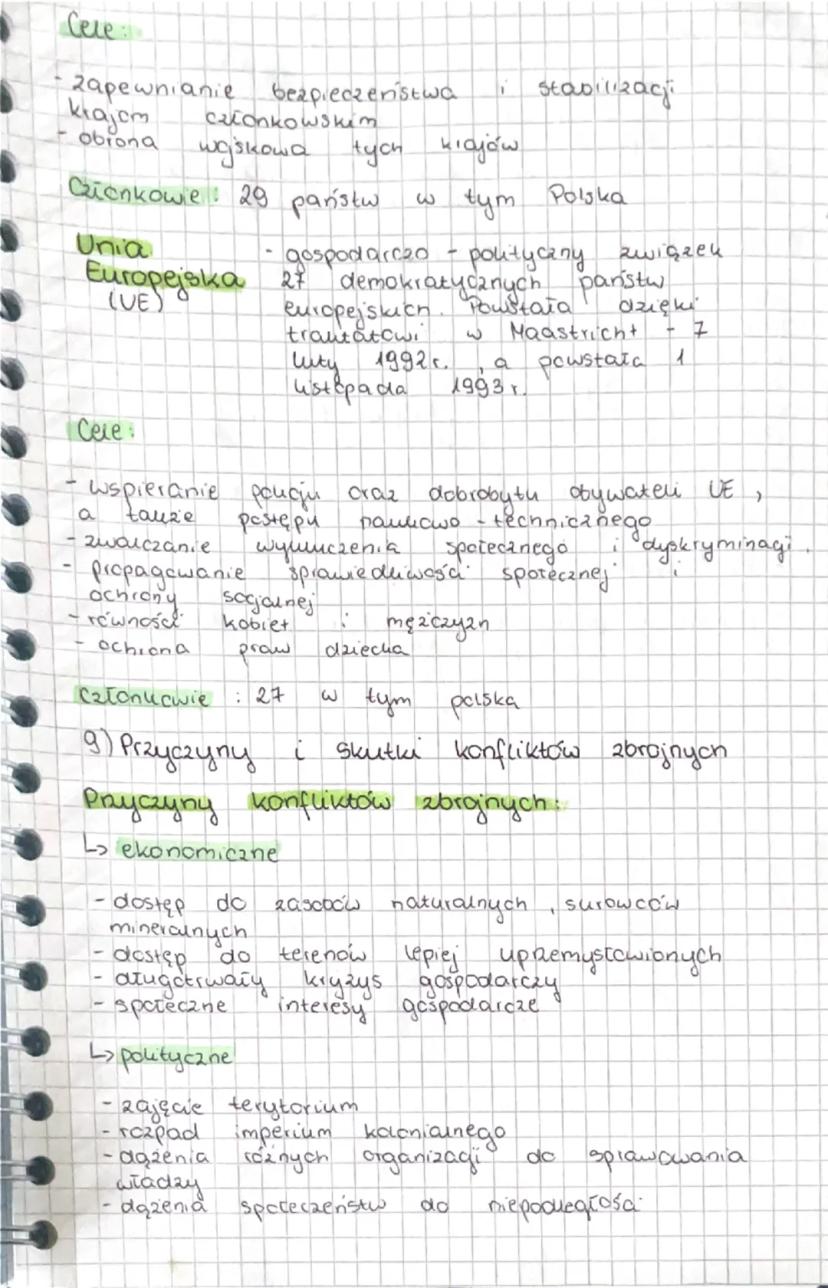 Cele:
- zapewnianie bezpieczeństwa i stabilizacji
krajom członkowskim
- obrona wojskowa tych krajów
Członkowie: 29 państw w tym Polska
Unia - gospodarczo - polityczny związek
Europejska 27 demokratycznych państw
(UE) europejskich. Powstała dzięki
traktatowi w Maastricht - 7
luty 1992r. , a powstała 1
listopada 1993 r.
Cele:
- wspieranie pokoju oraz dobrobytu obywateli UE ,
a także postępu naukowo - technicznego
- zwalczanie wykluczenia społecznego i dyskryminacji.
- propagowanie sprawiedliwości społecznej i
ochrony socjalnej
- równości kobiet i mężczyzn
- ochrona praw dziecka
Członkowie : 27 w tym polska
9) Przyczyny i skutki konfliktów zbrojnych
Przyczyny konfliktów zbrojnych:
↳ ekonomiczne
- dostęp do zasobów naturalnych , surowców
mineralnych
- dostęp do terenów lepiej uprzemysłowionych
- długotrwały kryzys gospodarczy
- społeczne interesy gospodarcze
↳ polityczne
- zajęcie terytorium
- rozpad imperium kolonialnego
- dążenia różnych organizacji do sprawowania
władzy
- dążenia społeczeństw do niepodległości